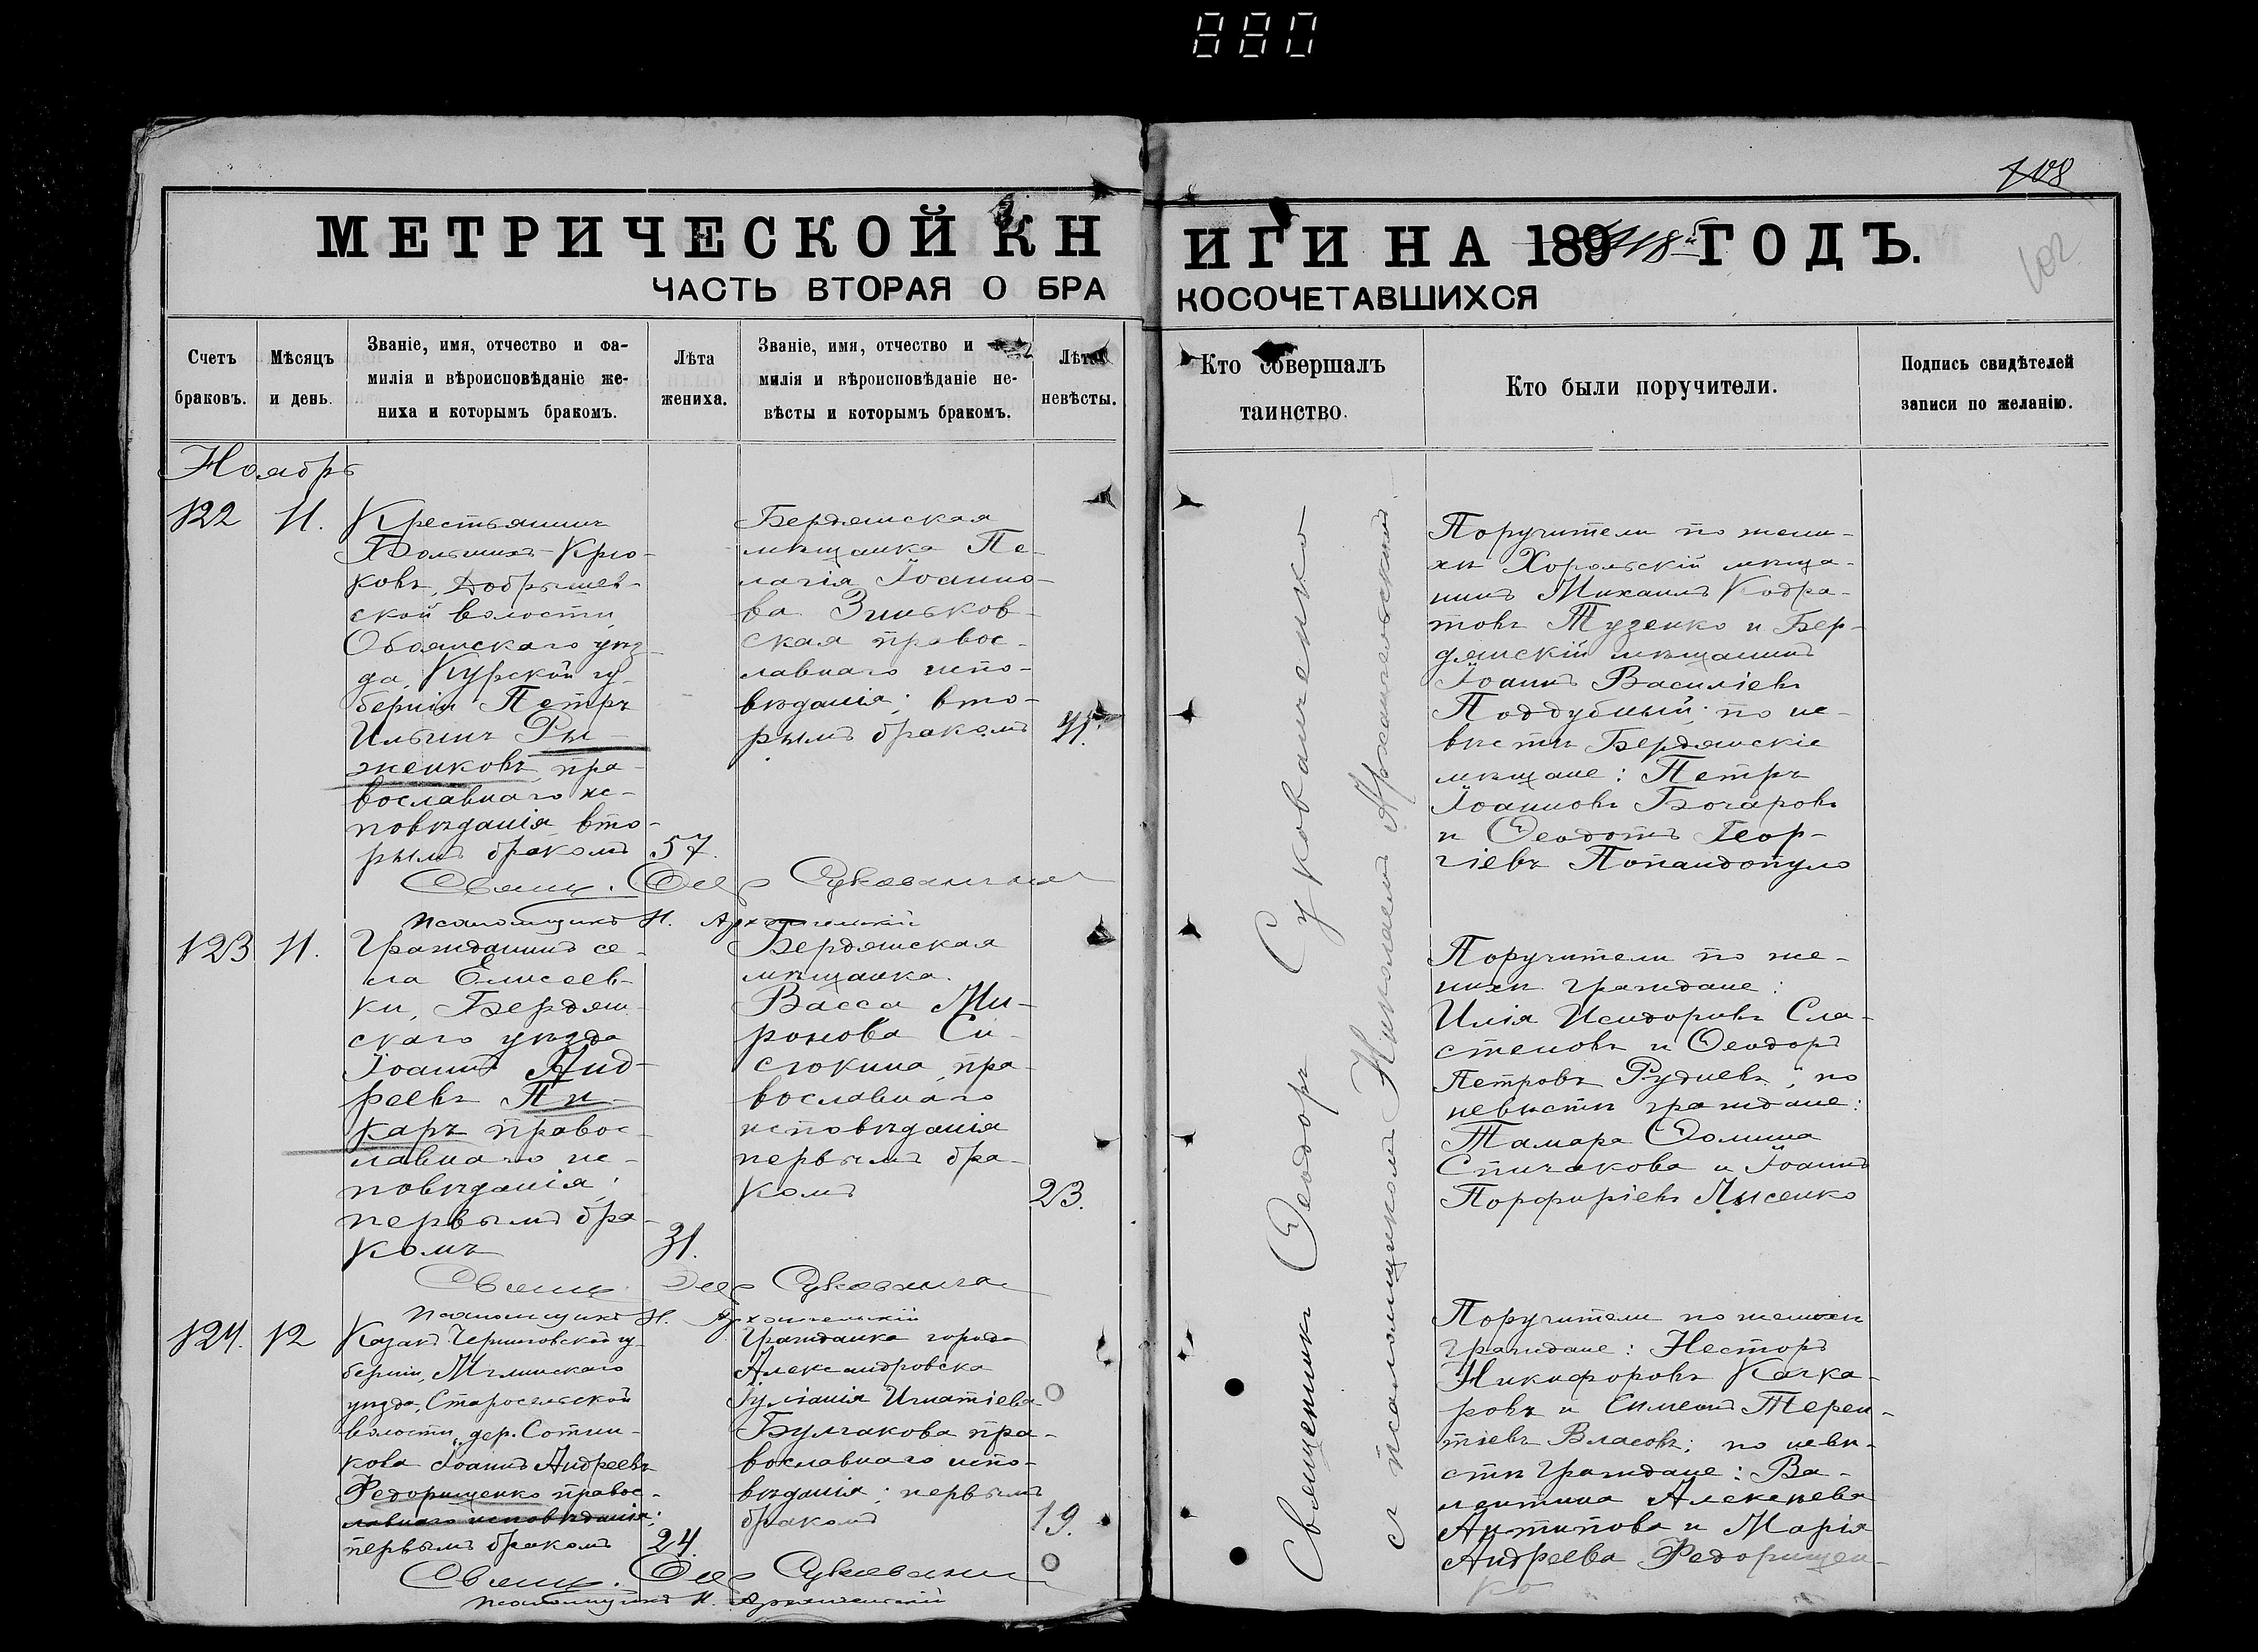 880
108
102
МЕТРИЧЕСКОЙ КНИГИ НА 1918й ГОДЪ.
ЧАСТЬ ВТОРАЯ О БРАКОСОЧЕТАВШИХСЯ
Счетъ
браковъ.
Мѣсяцъ
и день.
Званіе, имя, отчество и фа-
милія и вѣроисповѣданіе же-
ниха и которымъ бракомъ.
Лѣта
жениха.
Званіе, имя, отчество и
милія и вѣроисповѣданіе не-
вѣсты и которымъ бракомъ.
Лѣта
невѣсты.
Кто совершалъ
таинство.
Кто были поручители.
Подпись свидѣтелей
записи по желанію.
Ноябрь
122
11.
Крестьянинъ
Большихъ-Крю-
ковъ, Добрышев-
ской волости
Обоянскаго уѣз-
да, Курской гу-
берніи Петръ
Ильинъ Ры-
женковъ, пра-
вославнаго ис-
повѣданія, вто-
рымъ бракомъ
57.
Бердянская
мѣщанка Пе-
лагія Іоанно-
ва Зиньков-
ская правос-
лавнаго испо-
вѣданія; вто-
рымъ бракомъ
45.
Поручители по жени-
хѣ Хорольскій мѣща-
нинъ Михаилъ Кодра-
товъ Тузенко и Бер-
дянскій мѣщанинъ
Іоаннъ Василіевъ
Поддубный; по не-
вѣстѣ Бердянскіе
мѣщане: Петръ
Іоанновъ Бочаровъ
и Ѳеодотъ Геор-
гіевъ Попандопуло
Свящ. Ѳеор Суковаченко
Псаломщикъ Н. Архангельскій
123
11.
Гражданинъ се-
ла Елисеев-
ки, Бердян-
скаго уѣзда
Іоаннъ Анд-
реевъ Пи-
каръ правос-
лавнаго ис-
повѣданія;
первымъ бра-
комъ
31.
Бердянская
мѣщанка
Васса Ми-
ронова Си-
сюкина, пра-
вославнаго
исповѣданія
первымъ бра-
комъ
23.
Поручители по же-
нихѣ граждане:
Илія Исидоровъ Сла-
стеновъ и Ѳеодоръ
Петровъ Рудневъ; по
невѣстѣ граждане:
Тамара Ѳомина
Спичакова и Іоаннъ
Порфиріевъ Лысенко
Свящ. Ѳеор Суковаченко
Псаломщикъ Н. Архангельскій
124.
12
Казакъ Черниговской гу-
берніи, Мглинскаго
уѣзда, Старосельской
волости, дер. Сотни-
кова Іоаннъ Андреевъ
Федорищенко правос-
лавнаго исповѣданія;
первымъ бракомъ
24.
Гражданка города
Александровска
Іуліанія Игнатіева
Булгакова пра-
вославнаго испо-
вѣданія; первымъ
бракомъ
19.
Поручители по женихѣ
граждане: Несторъ
Никифоровъ Качка-
ровъ и Симеонъ Терен-
тіевъ Власовъ; по невѣ-
стѣ граждане: Ва-
лентина Алексѣева
Антипова и Марія
Андреева Федорищен-
ко
Свящ. Ѳеор Суковаченко
Псаломщикъ Н. Архангельскій
Священникъ Ѳеодоръ Суковаченко
съ псаломщикомъ Николаемъ Архангельскимъ